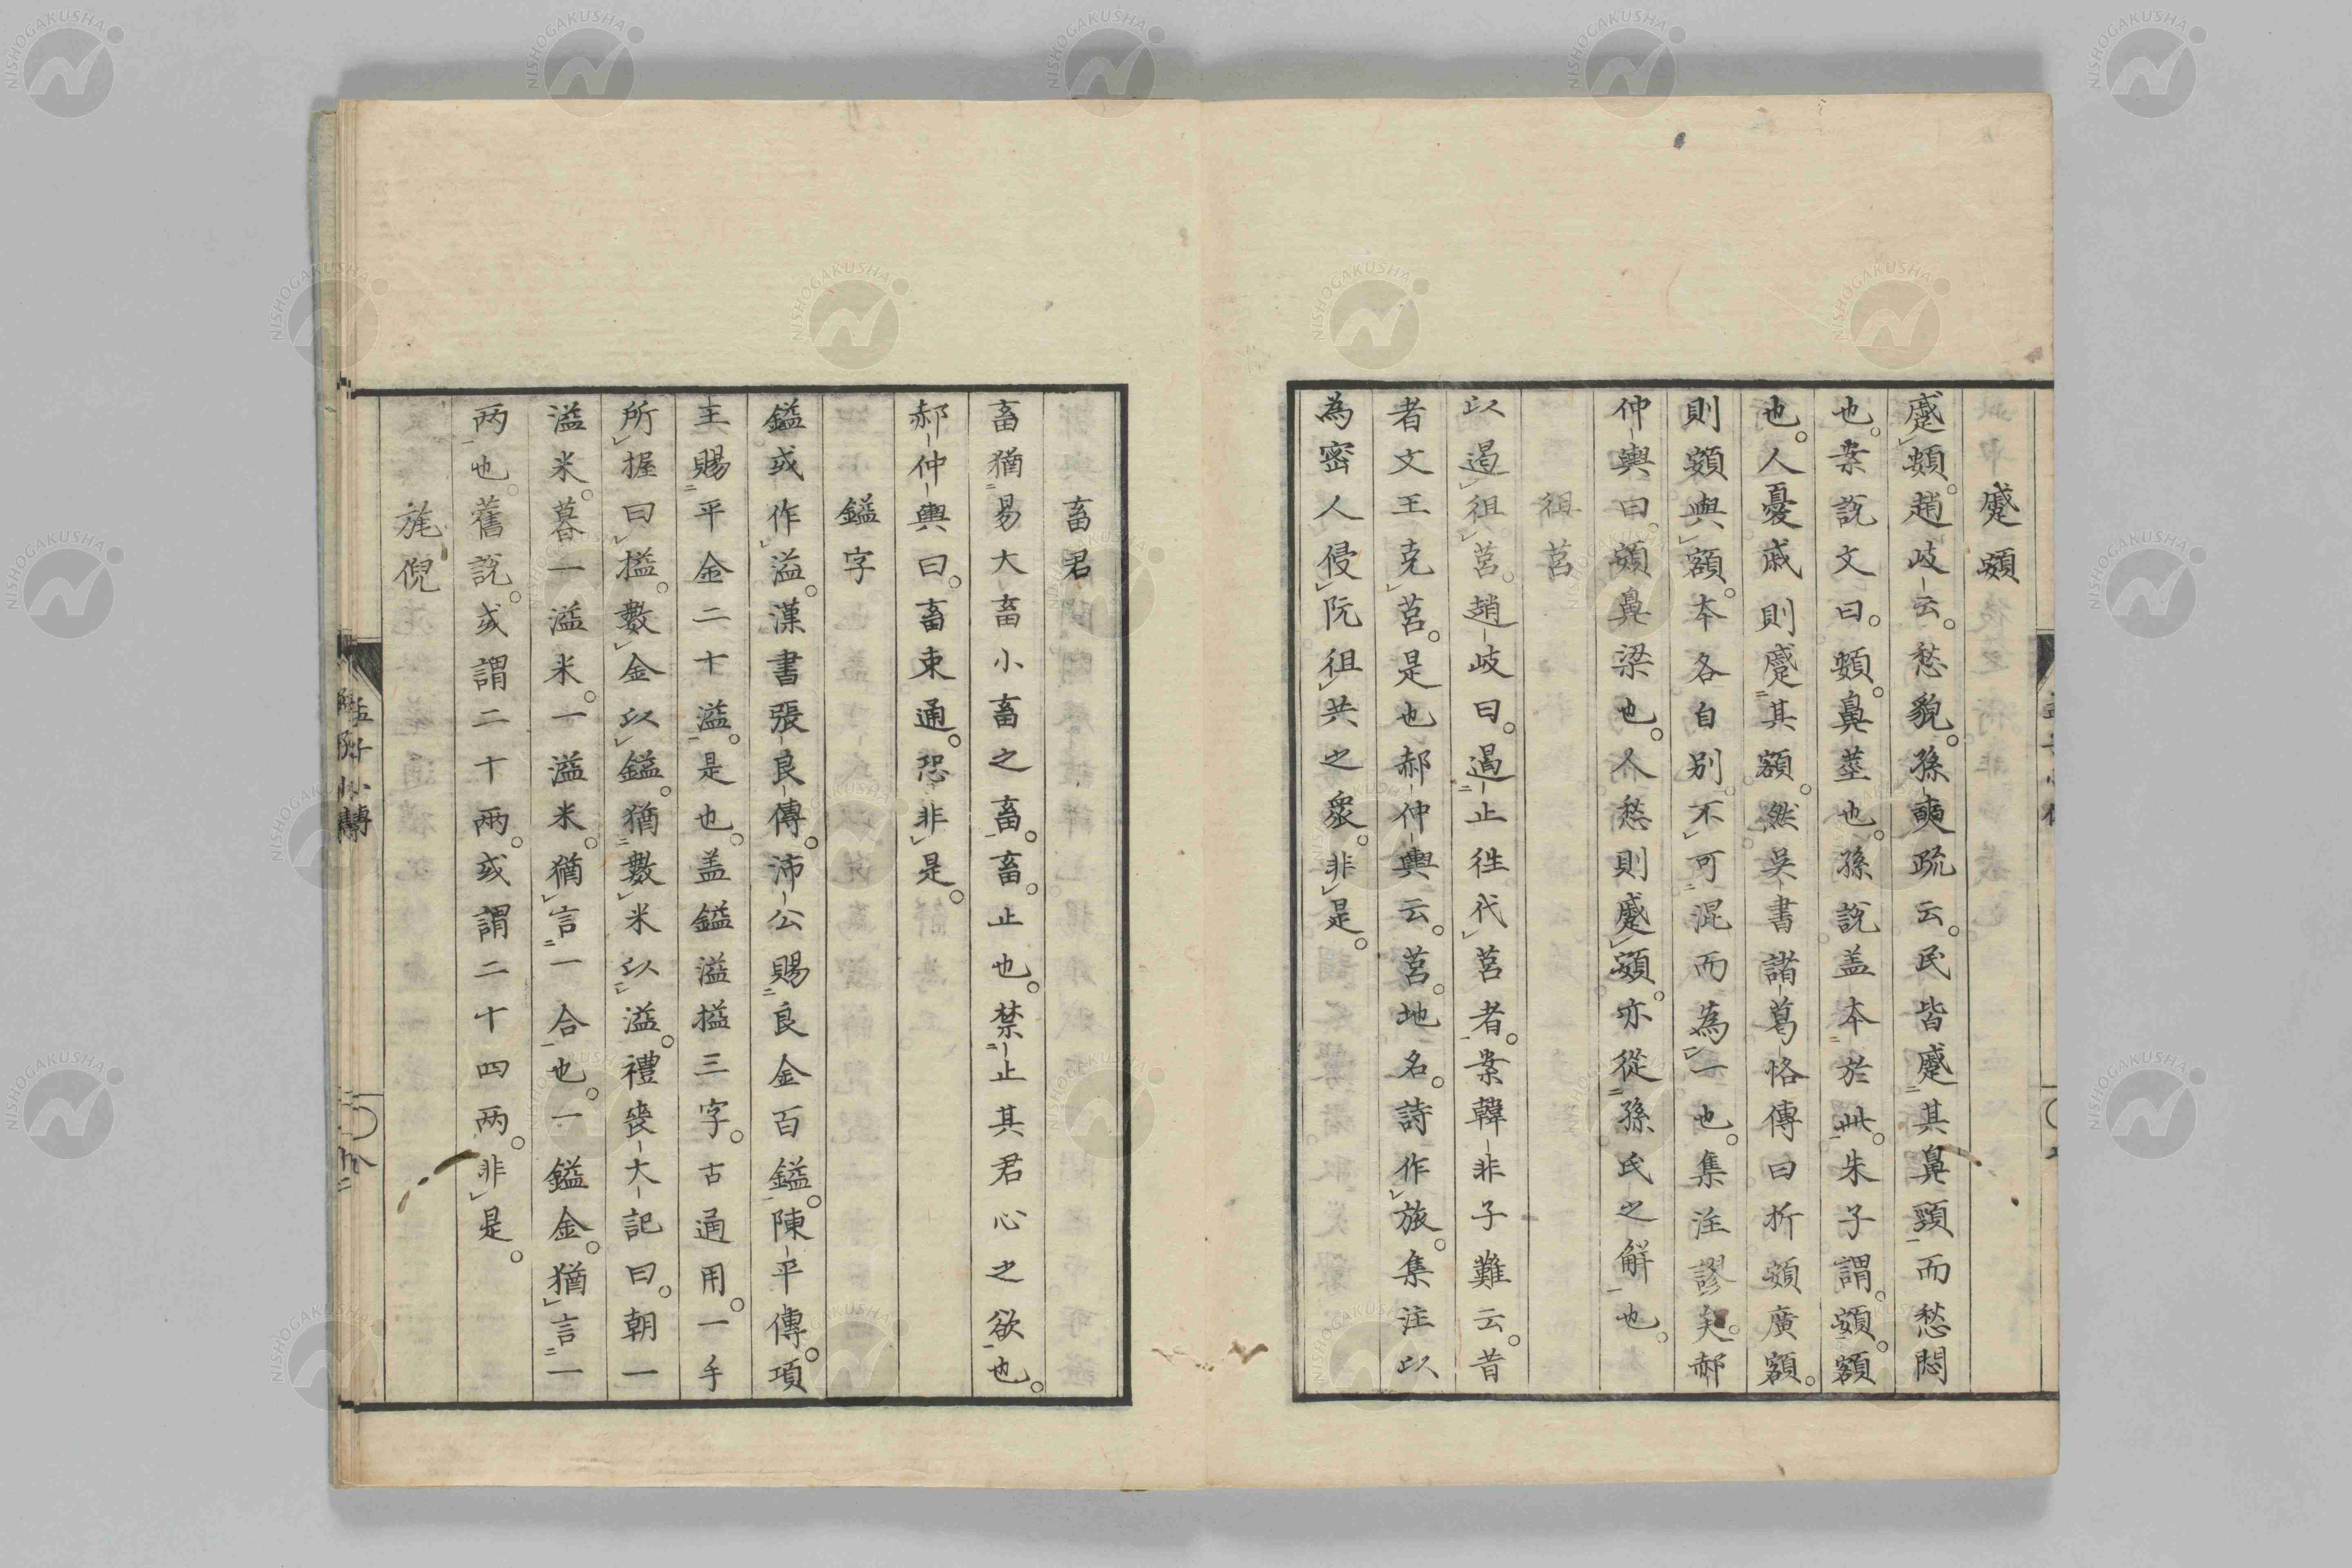 蹙頞
蹙頞。趙岐云。愁貌。孫奭疏云。民皆蹙其鼻頸而愁悶
也。案説文曰。頞。鼻莖也。孫説盖本於此。朱子謂。頞。額
也。人憂戚則蹙其額。然吳書諸葛恪傳曰折頞廣額。
則頞與額。本各自別不可混而為一也。集注謬矣。郝
仲輿曰。頞鼻梁也。人愁則蹙頞。亦從孫氏之解也。
徂莒
以遏徂莒。趙岐曰。遏止徃代莒者。案韓非子難云。昔
者文王克莒。是也郝仲輿云。莒。地名。詩作旅。集注以
為密人侵阮徂共之眾。非是。
畜君
畜猶易大畜小畜之畜。畜。止也。禁止其君心之欲也。
郝仲輿曰。畜束通。恐非是。
鎰字
鎰或作溢。漢書張良傳。沛公賜良金百鎰。陳平傳。項
王賜平金二十溢。是也。盖鎰溢搤三字。古通用。一手
所握曰搤。數金以鎰。猶數米以溢。禮喪大記曰。朝一
溢米。暮一溢米。一溢米。猶言一合也。一鎰金。猶言一
兩也。舊説。或謂二十兩。或謂二十四兩。非是。
旄倪
NISHOGAKUSHA